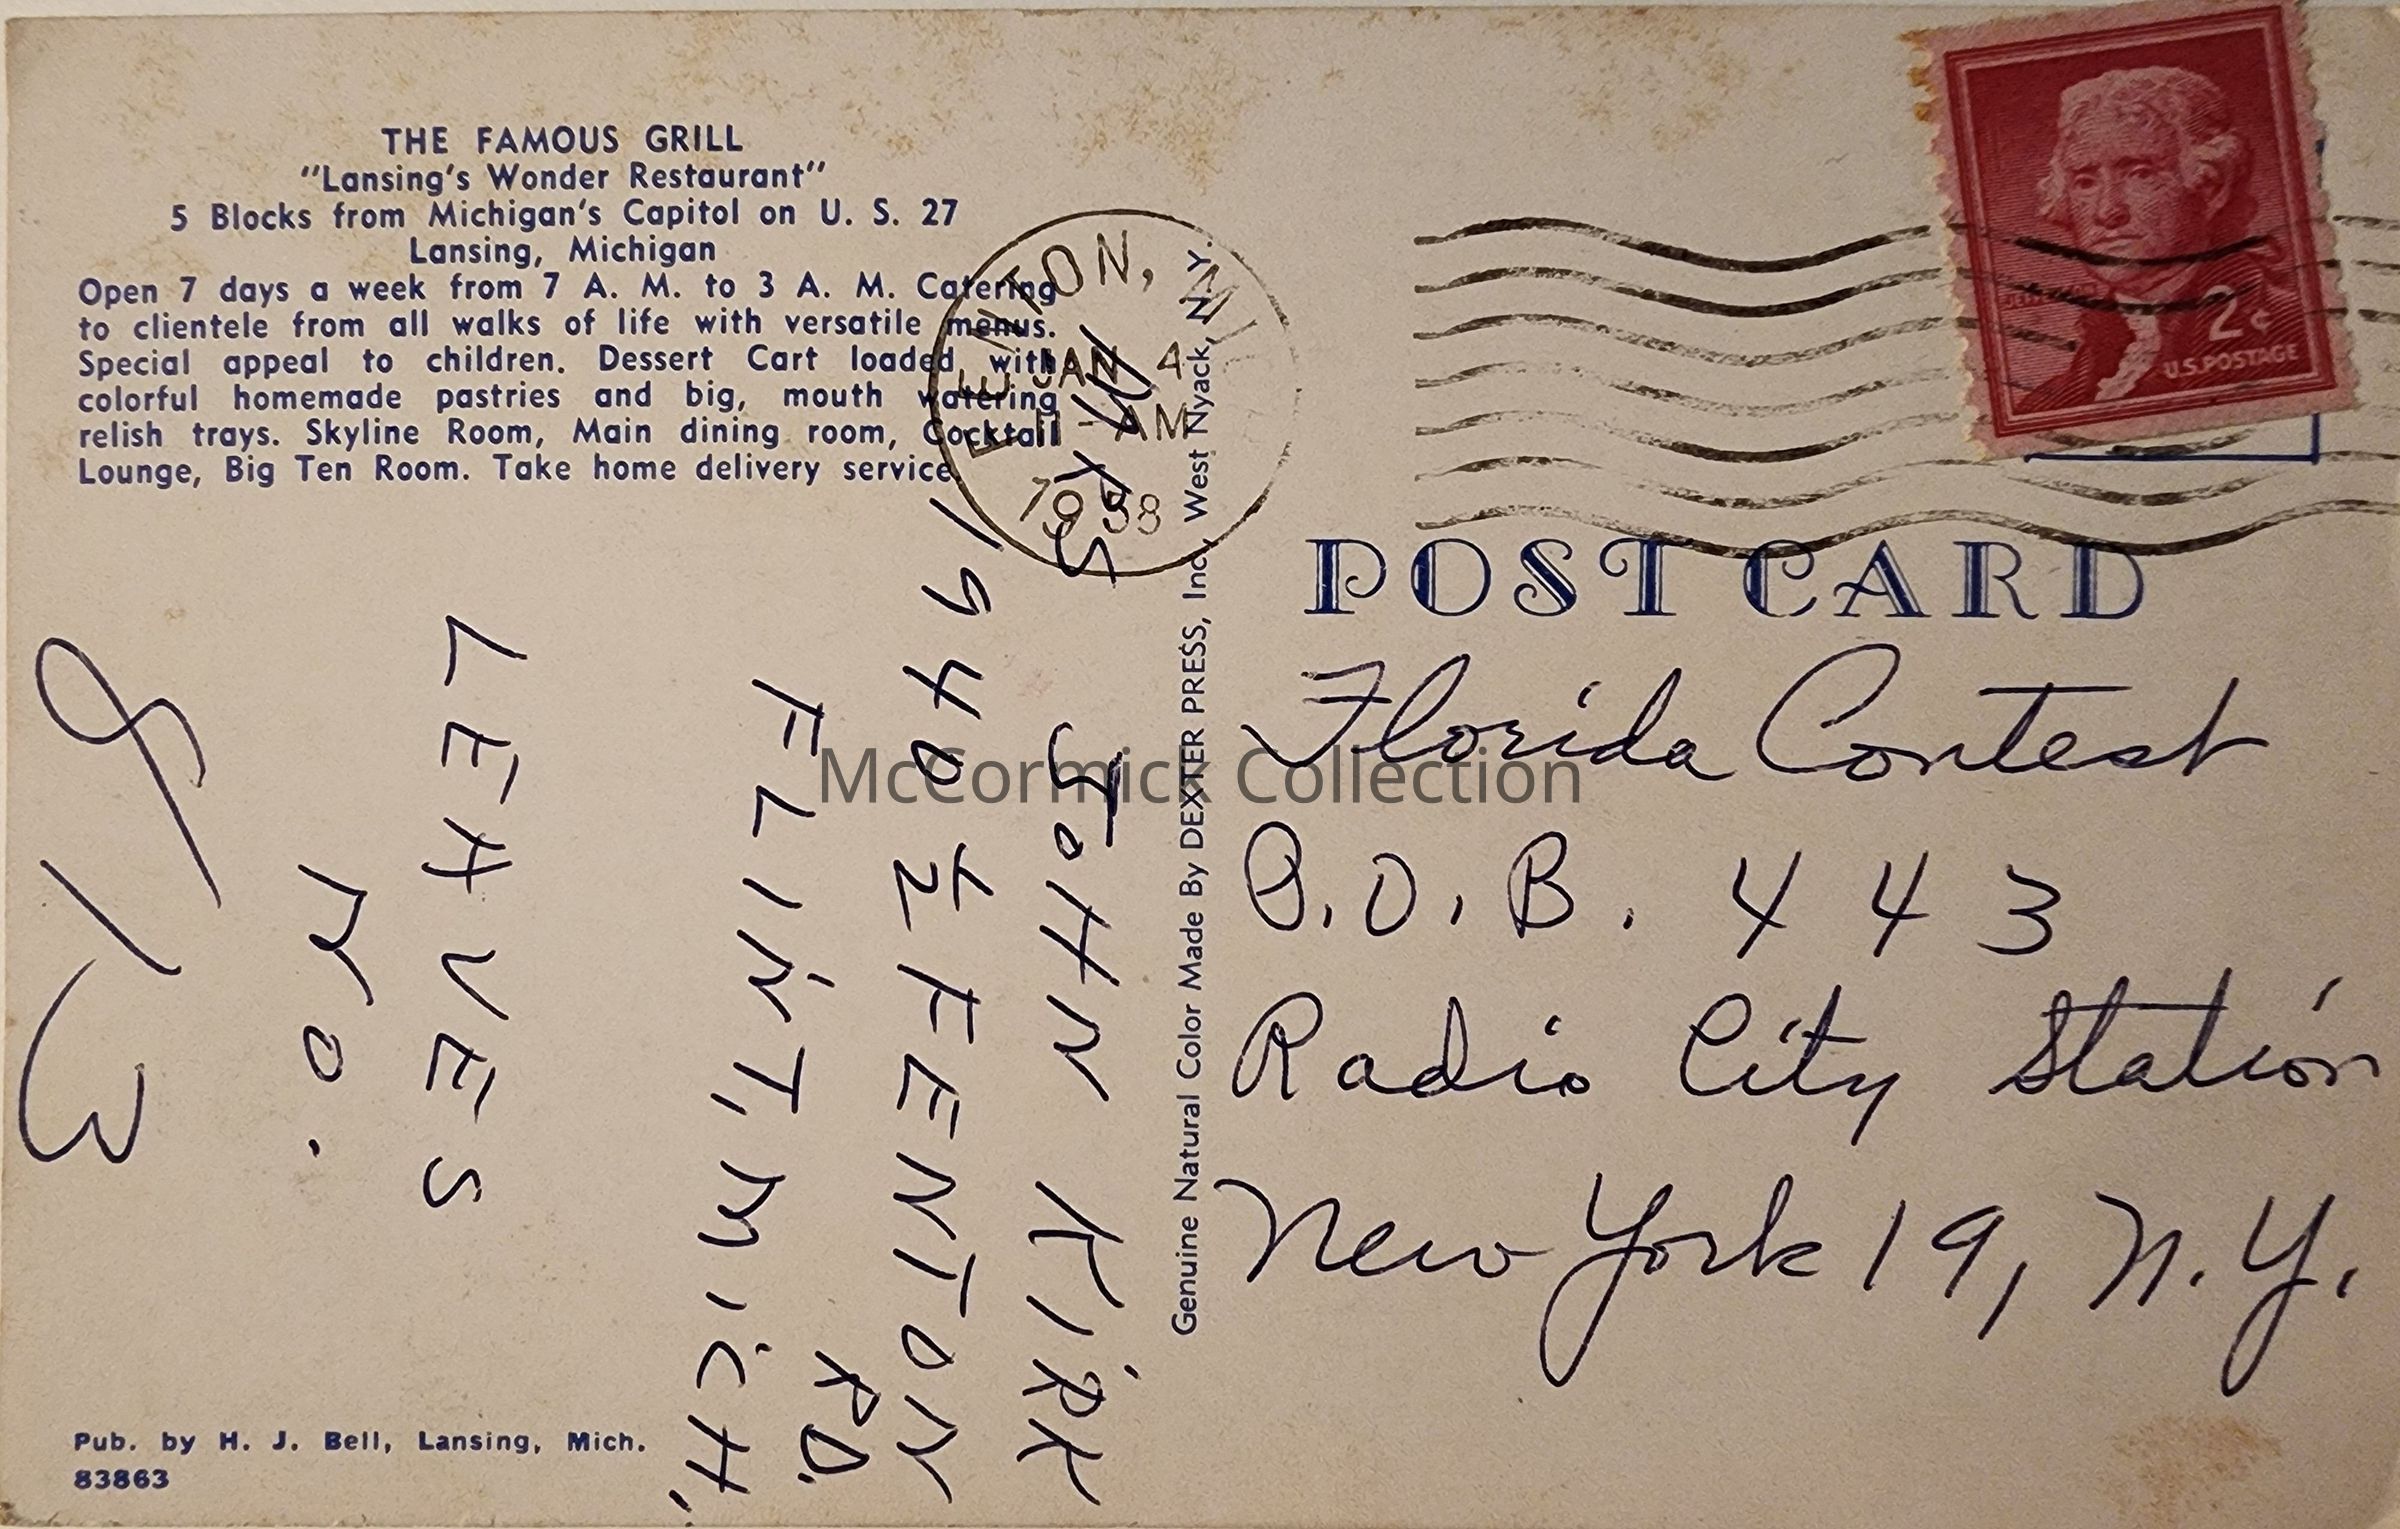 THE FAMOUS GRILL
"Lansing's Wonder Restaurant"
5 Blocks from Michigan's Capitol on U. S. 27
Lansing, Michigan
Open 7 days a week from 7 A. M. to 3 A. M. Catering
to clientele from all walks of life with versatile menus.
Special appeal to children. Dessert Cart loaded with
colorful homemade pastries and big, mouth watering
relish trays. Skyline Room, Main dining room, Cocktail
Lounge, Big Ten Room. Take home delivery service.
MRS JOHN KIRK
19402 FENTON
RD.
FLINT, MICH.
LEAVES
NO.
913
Pub. by H. J. Bell, Lansing, Mich.
83863
Genuine Natural Color Made By DEXTER PRESS, Inc, West Nyack, N.Y.
JAN 4
AM
1958
2¢
U.S. POSTAGE
POST CARD
Florida Contest
P.O.B. 443
Radio City Station
New York 19, N.Y.
McCormick Collection